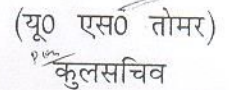 (यू0 एस0 तोमर)
कुलसचिव